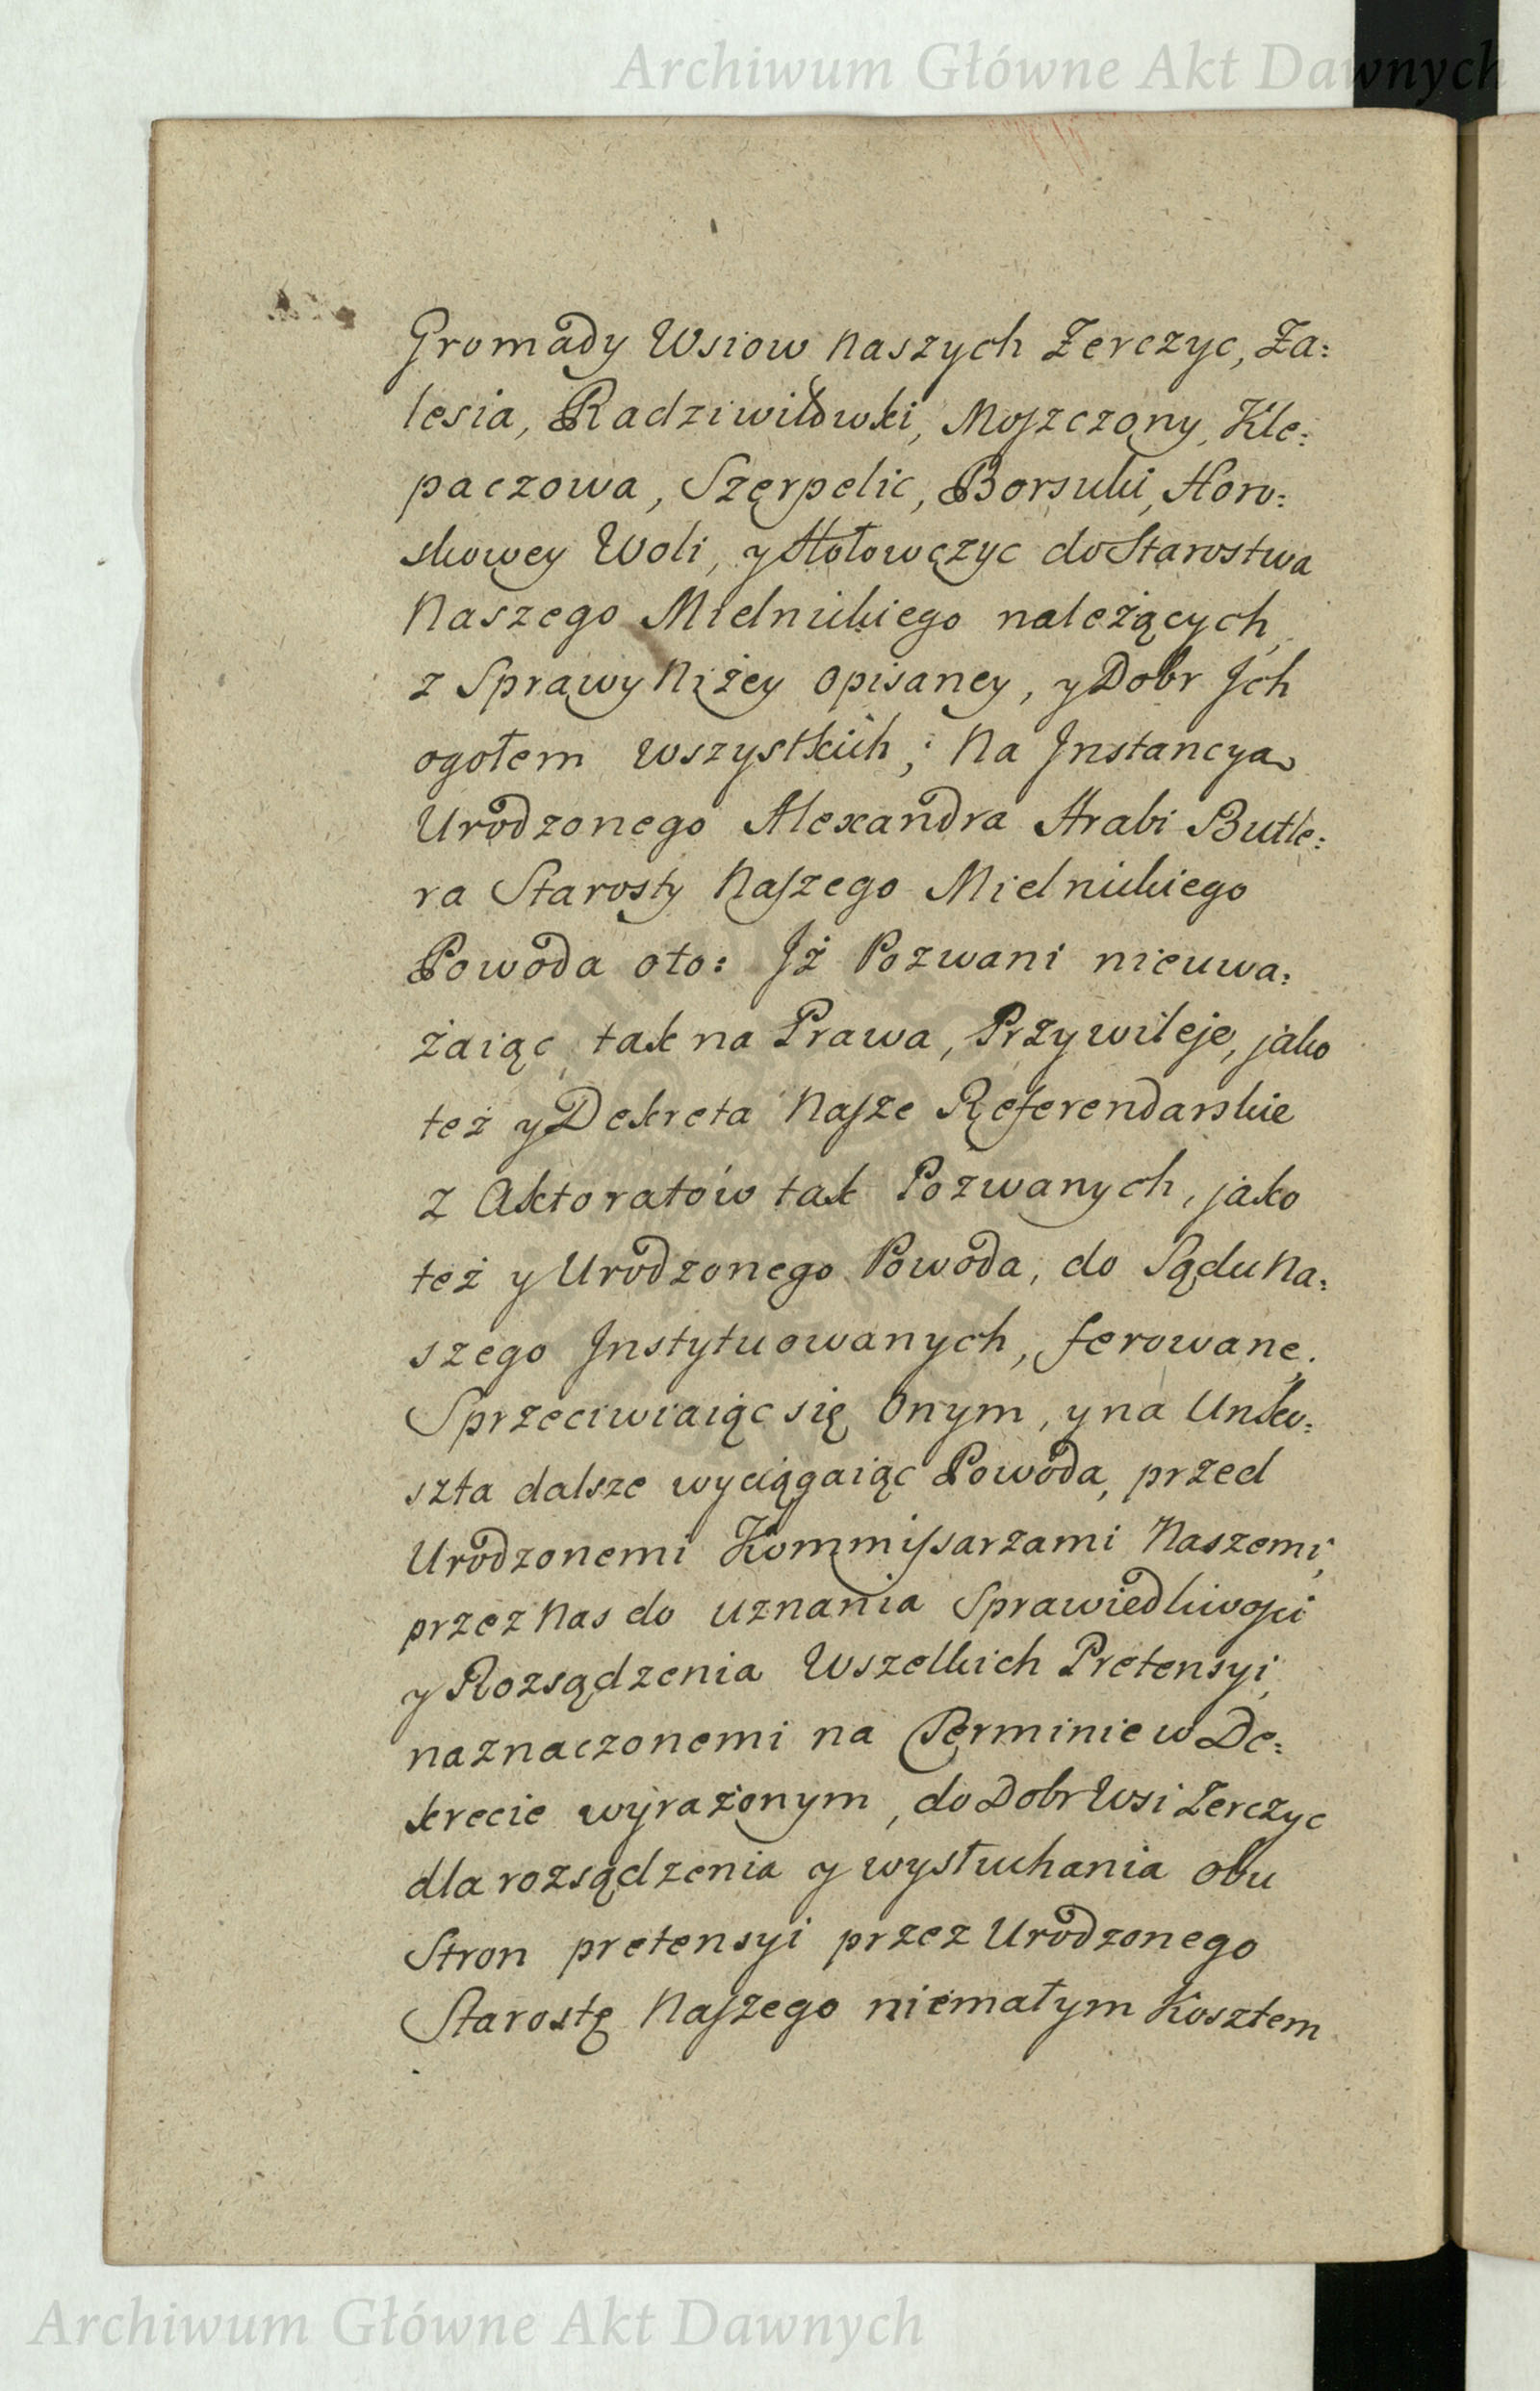 Archiwum Główne Akt Dawnych
Gromady Wsiow Naszych Zerczyc, Za:
lesia, Radziwiłowki, Moszczony, Kle:
paczowa, Szerpelic, Borsuki, Horo:
skowey Woli, y Hołowczyc do Starostwa
Naszego Mielnickiego należących
z Sprawy Niżey Opisaney, y Dobr Ich
ogołem wszystkich; Na Jnstancya
Urodzonego Alexandra Hrabi Butle:
ra Starosty Naszego Mielnickiego
Powoda oto: Jż Pozwani nieuwa:
żaiąc tak na Prawa, Przywileje, jako
też y Dekreta Nasze Referendarskie
z Aktoratów tak Pozwanych, jako
też y Urodzonego Powoda, do Sądu Na:
szego Jnstytuowanych, ferowane,
Sprzeciwiaiąc się Onym, y na Unko:
szta dalsze wyciągaiąc Powoda, przed
Urodzonemi Kommissarzami Naszemi,
przez Nas do Uznania Sprawiedliwości
y Rozsądzenia Wszelkich Pretensyi,
naznaczonemi na Terminie w De:
krecie wyrażonym, do Dobr Wsi Zerczyc
dla rozsądzenia y wysłuchania obu
Stron pretensyi przez Urodzonego
Starostę Naszego niemałym Kosztem
Archiwum Główne Akt Dawnych